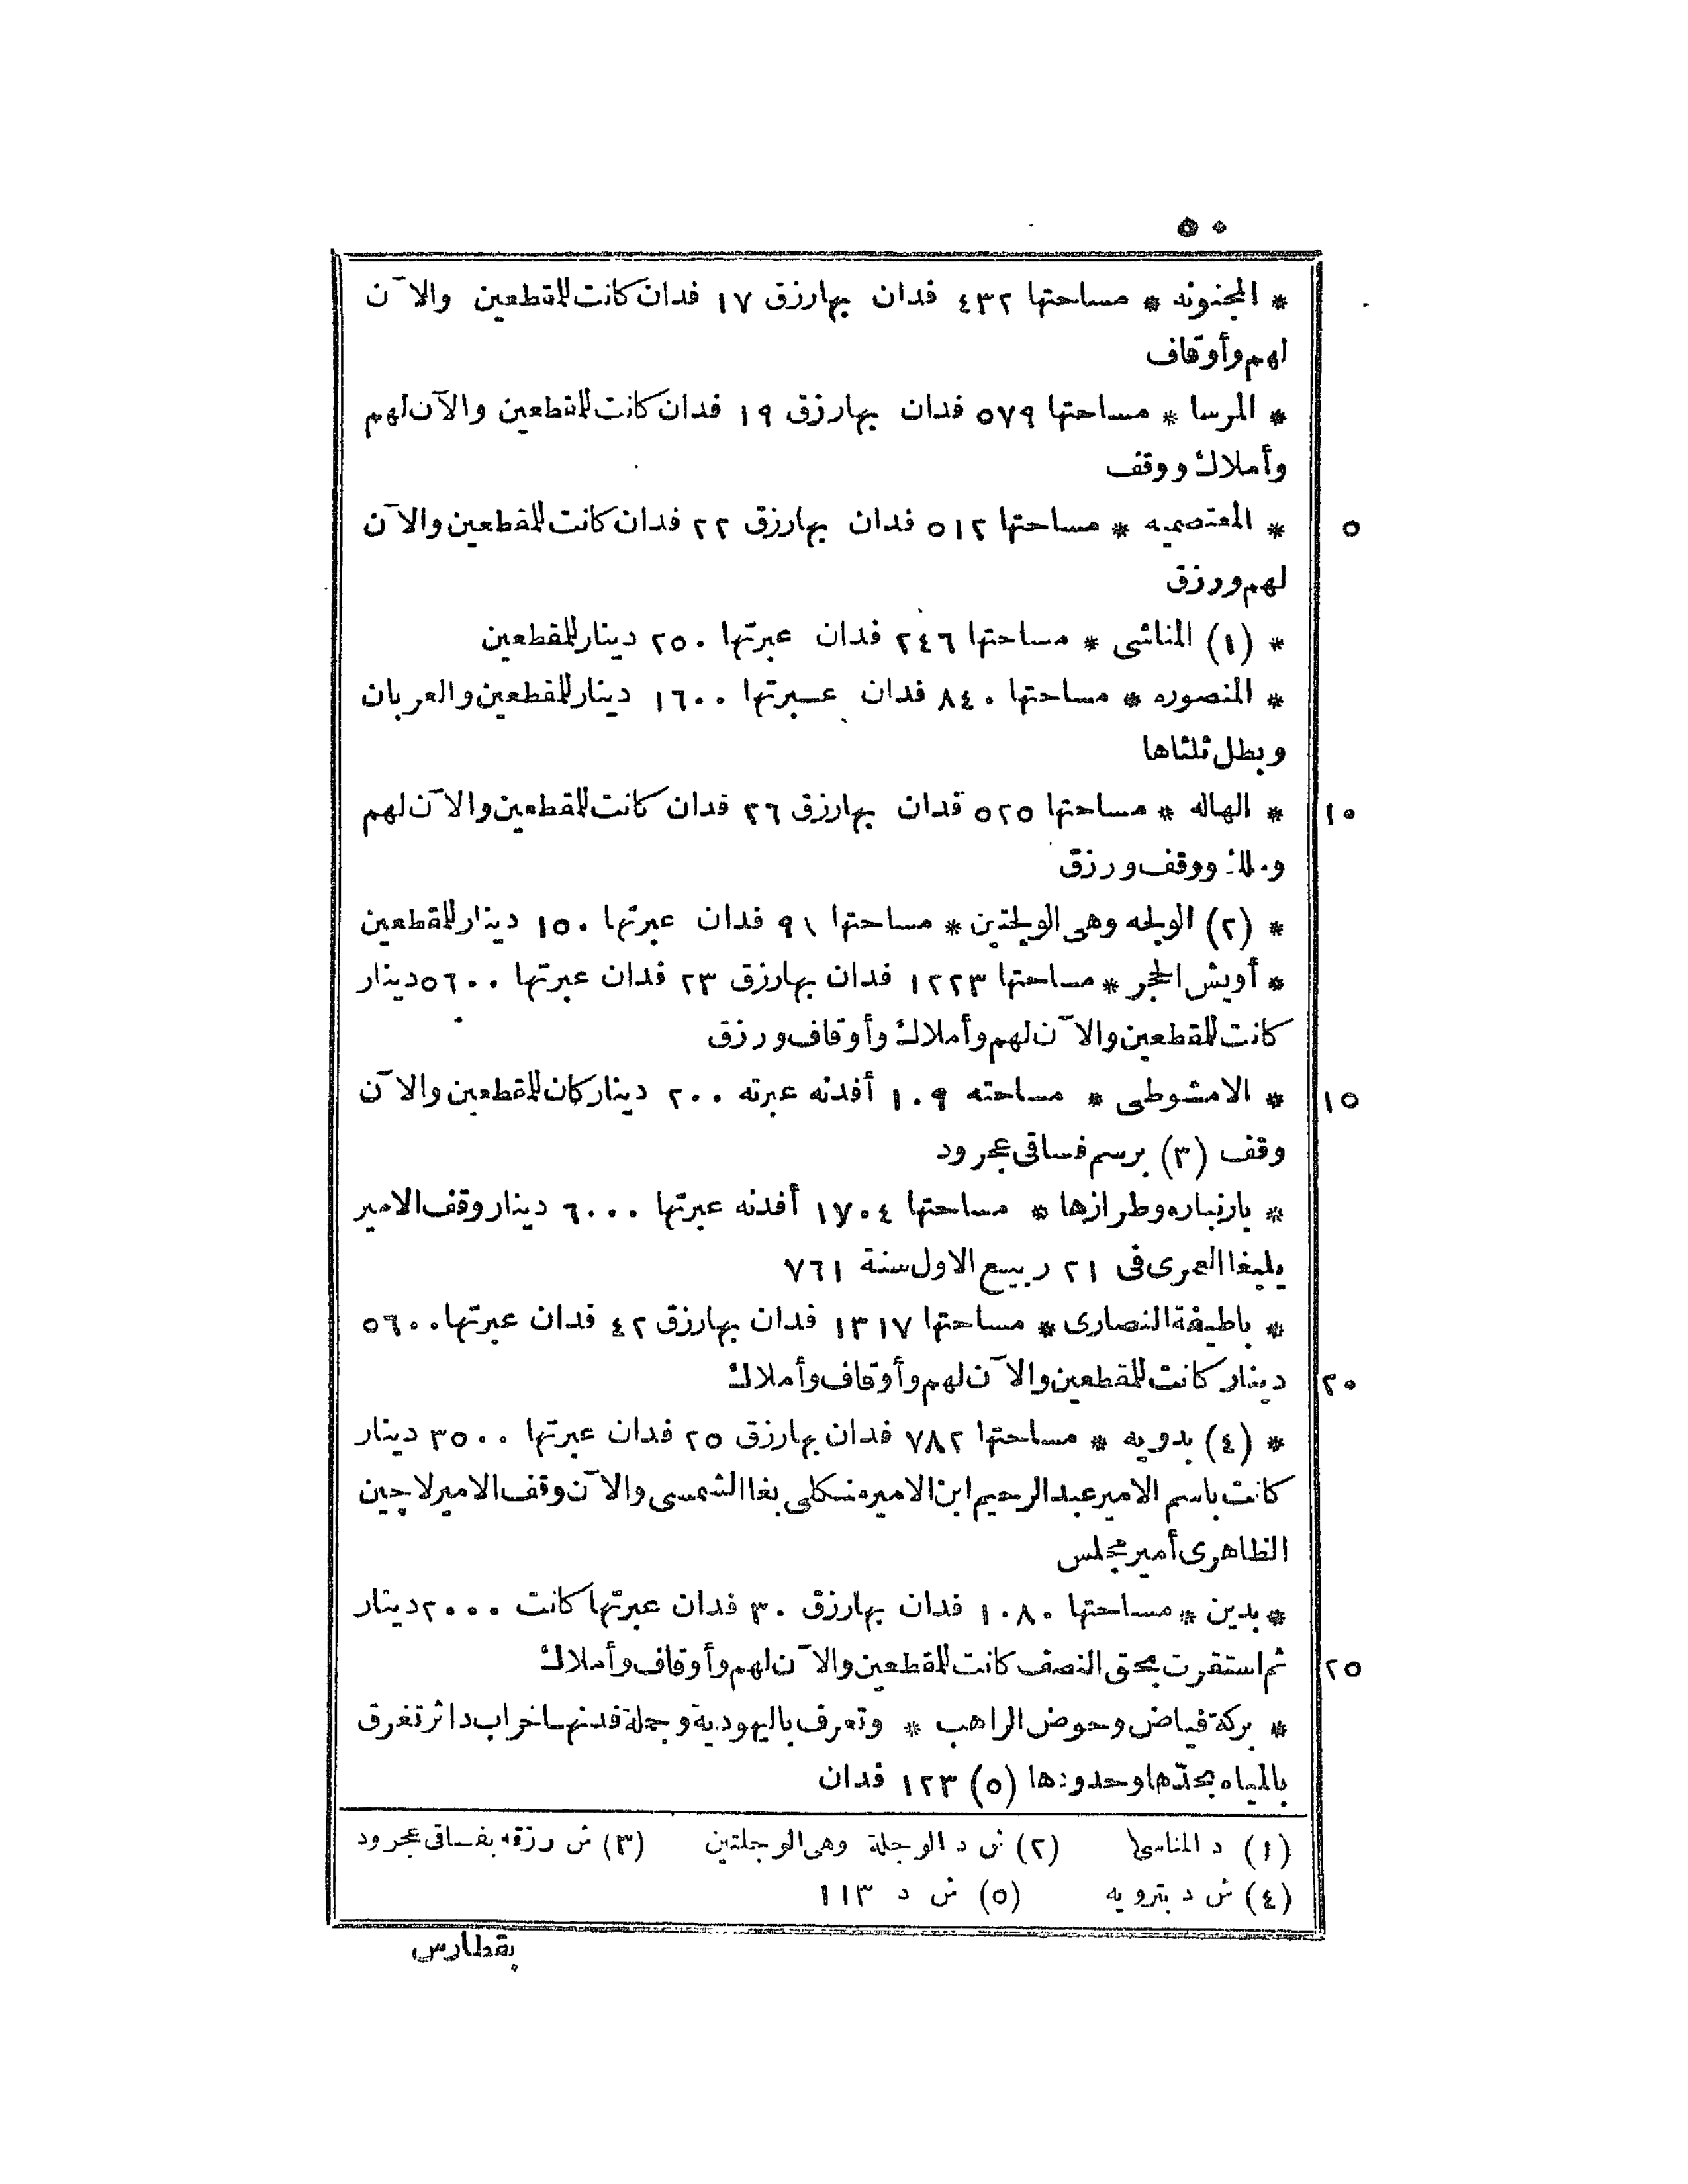 ٥٠
* المجنونه * مساحتها ٤٣٢ فدان بها رزق ١٧ فدان كانت للمقطعين والآن
لهم وأوقاف
* المرسا * مساحتها ٥٧٩ فدان بها رزق ١٩ فدان كانت للمقطعين والآن لهم
وأملاك ووقف
* المعتصميه * مساحتها ٥١٢ فدان بها رزق ٢٢ فدان كانت للمقطعين والآن ٥
لهم ورزق
* (١) المناشى * مساحتها ٢٤٦ فدان عبرتها ٢٥٠ دينار للمقطعين
* المنصوره * مساحتها ٨٤٠ فدان عبرتها ١٦٠٠ دينار للمقطعين والعربان
وبطل ثلثاها
* الهاله * مساحتها ٥٢٥ فدان بها رزق ٢٦ فدان كانت للمقطعين والآن لهم ١٠
وملك ووقف ورزق
* (٢) الويلحه وهى الويلحتين * مساحتها ٩١ فدان عبرتها ١٥٠ دينار للمقطعين
* أويش الحجر * مساحتها ١٢٢٣ فدان بها رزق ٢٣ فدان عبرتها ٥٦٠٠ دينار
كانت للمقطعين والآن لهم وأملاك وأوقاف ورزق
* الامشوطى * مساحته ١٠٩ أفدنه عبرته ٢٠٠ دينار كان للمقطعين والآن ١٥
وقف (٣) برسم فساقى عجرود
* بارنباره وطرازها * مساحتها ١٧٠٤ أفدنه عبرتها ٦٠٠٠ دينار وقف الامير
يلبغا العمرى فى ٢١ ربيع الاول سنة ٧٦١
* باطيفة النصارى * مساحتها ١٣١٧ فدان بها رزق ٤٢ فدان عبرتها ٥٦٠٠
دينار كانت للمقطعين والآن لهم وأوقاف وأملاك ٢٠
* (٤) بدويه * مساحتها ٧٨٢ فدان بها رزق ٢٥ فدان عبرتها ٣٥٠٠ دينار
كانت باسم الامير عبد الرحيم ابن الامير منكلى بغا الشمسى والآن وقف الامير لاجين
الظاهرى أمير مجلس
* بدين * مساحتها ١٠٨٠ فدان بها رزق ٣٠ فدان عبرتها كانت ٢٠٠٠ دينار
ثم استقرت بحق النصف كانت للمقطعين والآن لهم وأوقاف وأملاك ٢٥
* بركة فياض وحوض الراهب * وتعرف باليهودية وجملة فدنها خراب داثر تغرق
بالمياه بحدّها وحدودها (٥) ١٢٣ فدان
(١) د المناسى (٢) ش د الوجلة وهى الوجلتين (٣) ش رزقه بفساقى عجرود
(٤) ش د بترويه (٥) ش د ١١٣
بقطارس